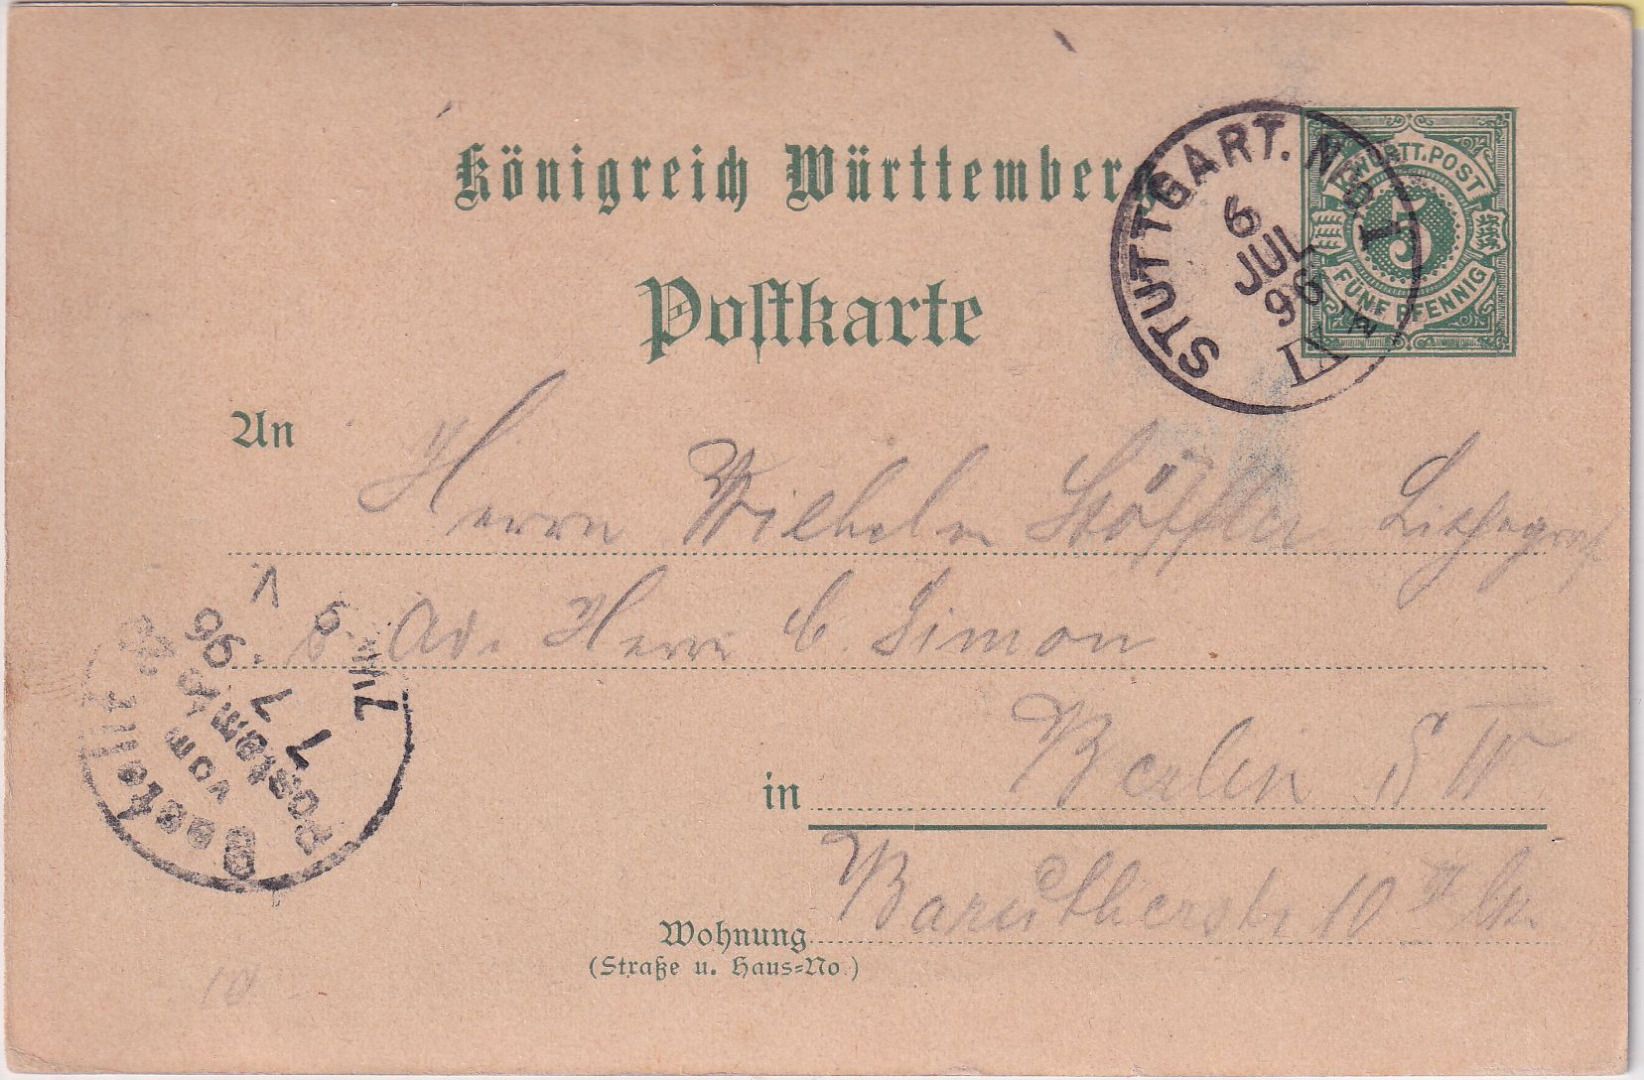 Königreich Württemberg
STUTTGART. No. I
6
JUL
96
WÜRTT. POST
5
FÜNF PFENNIG
Postkarte
An
Herrn Wilhelm Stöffler Lithograf
Ad. Herr C. Simon
in Berlin S W
Wohnung Barutherstr. 10 III
(Straße u. Haus=No.)
Bestellt
vom
Postamte
7
7
96
V
10